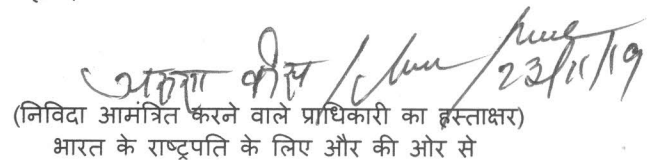 23/11/19
(निविदा आमंत्रित करने वाले प्राधिकारी का हस्ताक्षर)
भारत के राष्ट्रपति के लिए और की ओर से